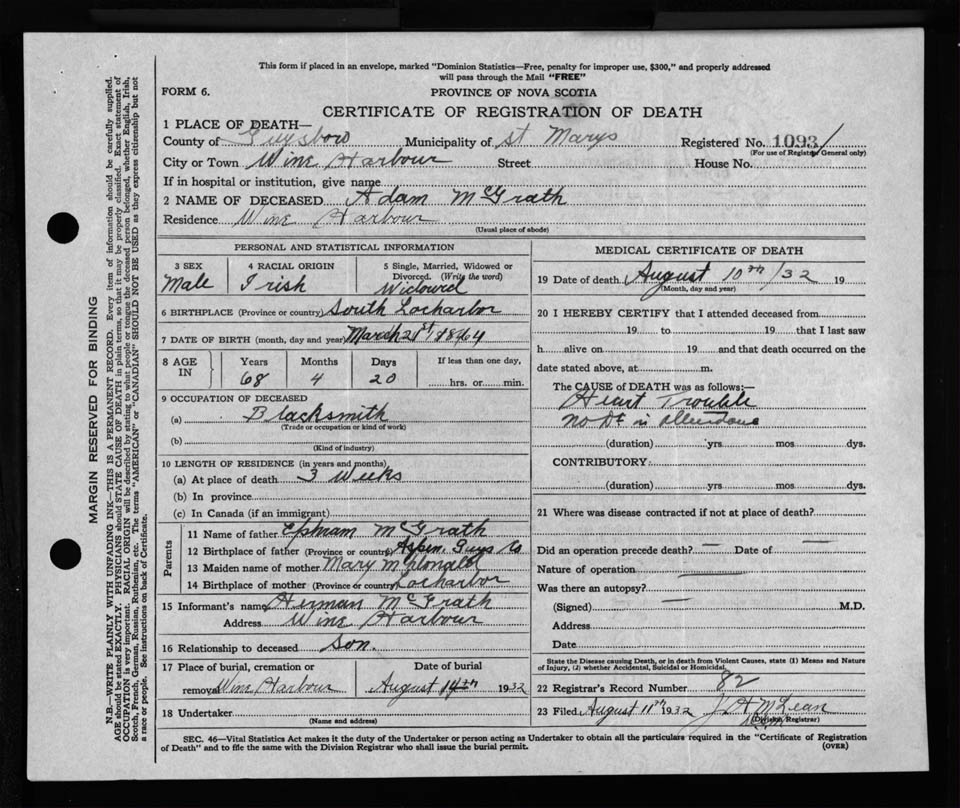 This form if placed in an envelope, marked "Dominion Statistics—Free, penalty for improper use, $300," and properly addressed
will pass through the Mail "FREE"
FORM 6.
PROVINCE OF NOVA SCOTIA
CERTIFICATE OF REGISTRATION OF DEATH
1 PLACE OF DEATH—
County of Guysboro Municipality of St Marys Registered No. 1093
(For use of Registrar General only)
City or Town Wine Harbour Street House No.
If in hospital or institution, give name
2 NAME OF DECEASED Adam McGrath
Residence Wine Harbour
(Usual place of abode)
PERSONAL AND STATISTICAL INFORMATION
3 SEX
Male
4 RACIAL ORIGIN
Irish
5 Single, Married, Widowed or
Divorced. (Write the word)
Widowed
6 BIRTHPLACE (Province or country) South Locharbor
7 DATE OF BIRTH (month, day and year) March 21st 1864
8 AGE
IN
Years
68
Months
4
Days
20
If less than one day,
hrs. or min.
9 OCCUPATION OF DECEASED
(a) Blacksmith
(Trade or occupation or kind of work)
(b)
(Kind of industry)
10 LENGTH OF RESIDENCE (in years and months)
(a) At place of death 3 Weeks
(b) In province
(c) In Canada (if an immigrant)
Parents
11 Name of father Ephraim McGrath
12 Birthplace of father (Province or country) Aspen, Guys Co
13 Maiden name of mother Mary McDonald
14 Birthplace of mother (Province or country) Locharbor
15 Informant's name Herman McGrath
Address Wine Harbour
16 Relationship to deceased Son.
17 Place of burial, cremation or
removal Wine Harbour
Date of burial
August 14th 1932
18 Undertaker
(Name and address)
MEDICAL CERTIFICATE OF DEATH
19 Date of death August 10th/32 19
(Month, day and year)
20 I HEREBY CERTIFY that I attended deceased from
19 to 19 that I last saw
h alive on 19 and that death occurred on the
date stated above, at m.
The CAUSE of DEATH was as follows:—
Heart Trouble
No Dr in attendance
(duration) yrs mos dys.
CONTRIBUTORY
(duration) yrs mos dys.
21 Where was disease contracted if not at place of death?
Did an operation precede death? — Date of —
Nature of operation —
Was there an autopsy?
(Signed) — M.D.
Address
Date
State the Disease causing Death, or in death from Violent Causes, state (1) Means and Nature
of Injury, (2) whether Accidental, Suicidal or Homicidal.
22 Registrar's Record Number 82
23 Filed August 11th 1932 J A McLean
(Division Registrar)
SEC. 46—Vital Statistics Act makes it the duty of the Undertaker or person acting as Undertaker to obtain all the particulars required in the "Certificate of Registration
of Death" and to file the same with the Division Registrar who shall issue the burial permit.
(OVER)
MARGIN RESERVED FOR BINDING
N.B.—WRITE PLAINLY WITH UNFADING INK—THIS IS A PERMANENT RECORD. Every item of information should be carefully supplied.
AGE should be stated EXACTLY. PHYSICIANS should STATE CAUSE OF DEATH in plain terms, so that it may be properly classified. Exact statement of
OCCUPATION is very important. RACIAL ORIGIN will be described by stating to what people or tongue the deceased person belonged, whether English, Irish,
Scotch, French, German, Russian, Ruthenian, etc. The terms "AMERICAN" or "CANADIAN" SHOULD NOT BE USED as they express citizenship but not
a race or people. See instructions on back of Certificate.